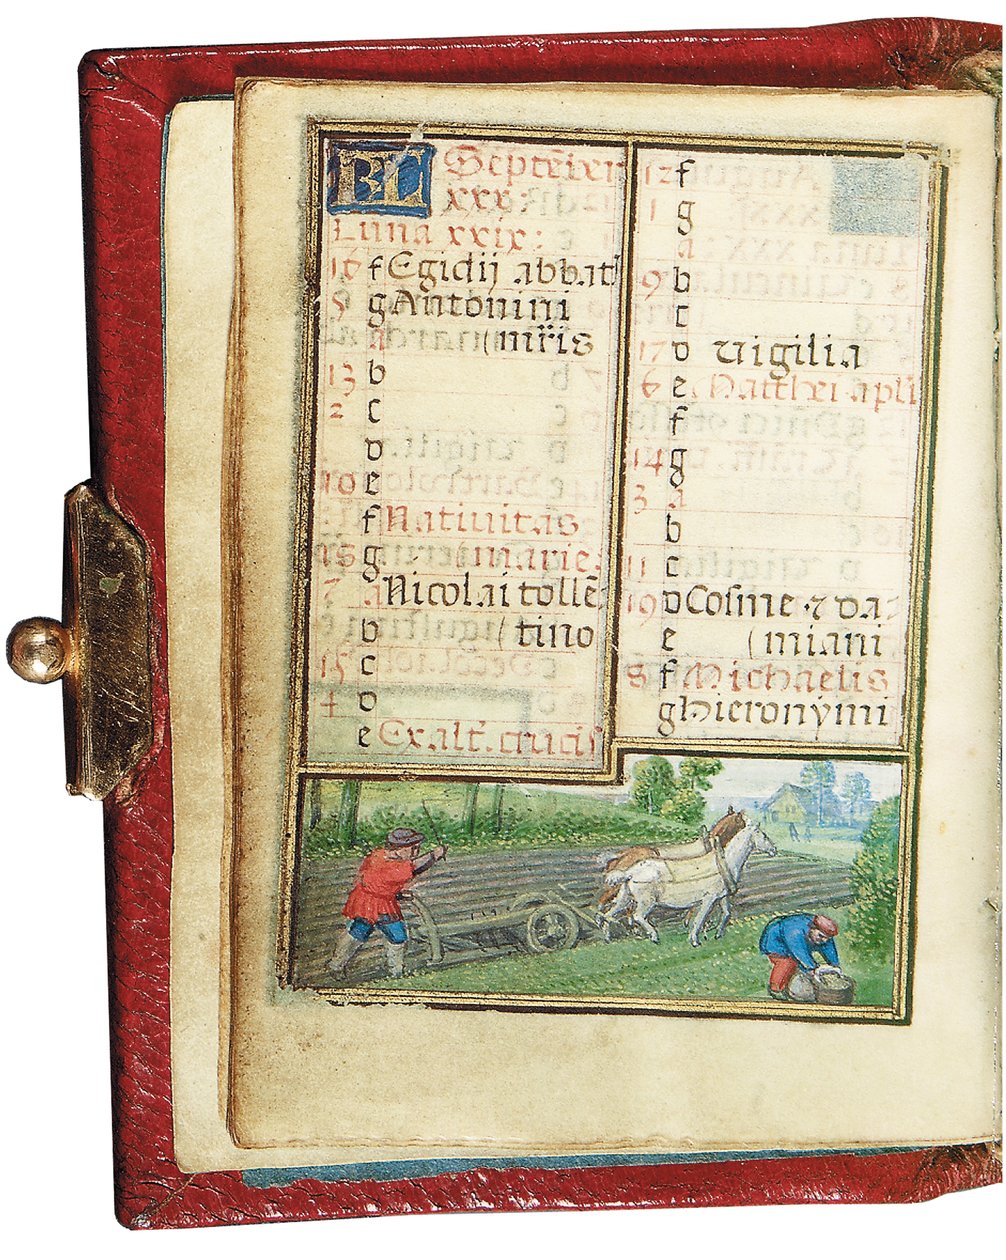 KL Septēber
xxx
Luna xxix:
16 f Egidij abbat
5 g Antonini
a (mr̄is
13 b
2 c
d
10 e
f Natiuitas
18 g (marie:
7 a Nicolai tollē
b (tino
15 c
4 d
e Exalt. crucis
12 f
1 g
a
9 b
c
17 d uigilia
6 e Matthei apli
f
14 g
3 a
b
11 c
19 d Cosme ⁊ da
e (miani
8 f Michaelis
g Hieronymi